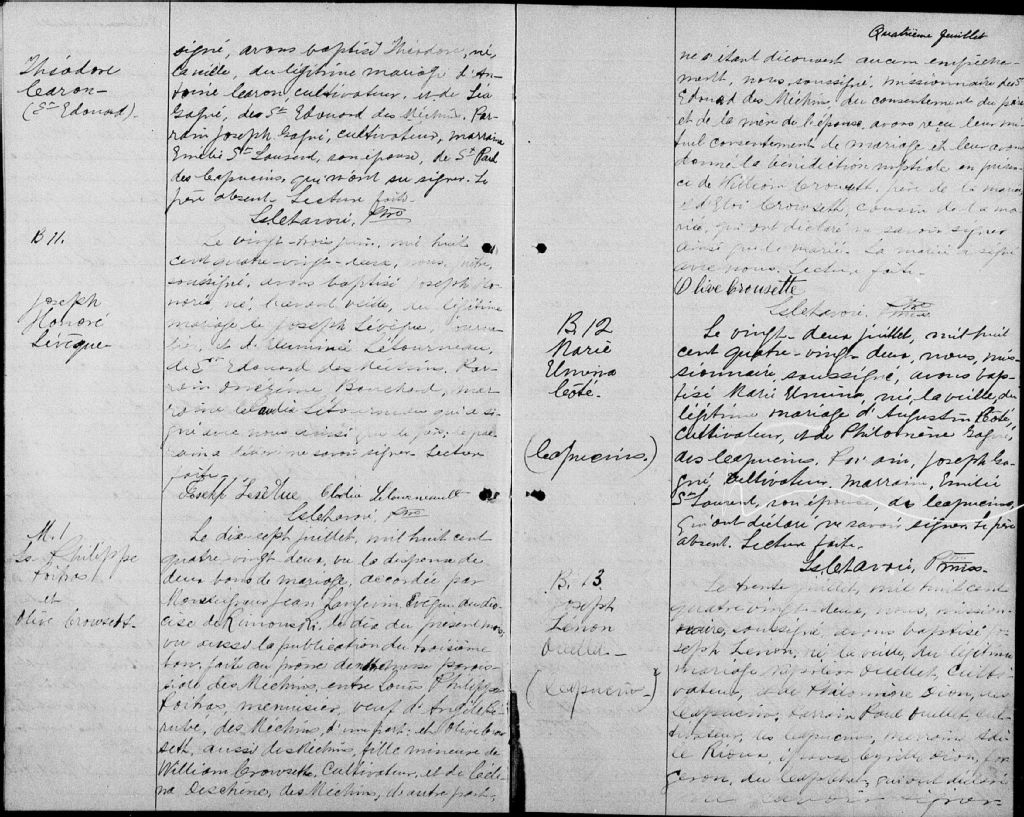 Théodore
Caron
(St Edouard).
signé, avons baptisé Théodore, né,
la veille, du légitime mariage d'An-
toine Caron, cultivateur, et de Léa
Gagné, des St Edouard des Méchins, Par-
rain Joseph Gagné, cultivateur, marraine
Emélie St Laurent, son épouse, de St Paul
des Capucins, qui n'ont su signer. Le
père absent. Lecture faite.
Ptre
B 11.
Joseph
Honoré
Lévèque
Le vingt-trois juin, mil huit
cent quatre-vingt-deux, nous, prêtre,
soussigné, avons baptisé Joseph Ho-
noré né, veille, du légitime
mariage de Joseph Lévèque,
et d' Létourneau,
de St Edouard des Méchins, Par-
rain Onézime Bouchard, mar-
raine Létourneau qui a si-
gné avec nous ainsi que le père, le par-
rain a déclaré ne savoir signer. Lecture
faite.
Joseph Levêque Clodia Letourneault
Ptre
M. 1
Ls Philippe
Poitras
et
Olive Crowsett
Le dix-sept juillet, mil huit cent
quatre-vingt-deux, vu la dispense de
deux bans de mariage, accordée par
Monseigneur Jean Langevin Evêque du dio-
cèse de Rimouski, le dix du présent mois,
vu aussi la publication du troisième
ban, faite au prône de messe parois-
siale des Méchins, entre Louis Philippe
Poitras, menuisier, veuf d'Angèle Bé-
rubé, des Méchins, d'une part, et Olive Crow-
sett, aussi des Méchins, fille mineure de
William Crowsette, Cultivateur, et de Céli-
na Deschênes, des Méchins, d'autre part,
Quatrième feuillet
ne s'étant découvert aucun empêche-
ment, nous, soussigné, missionnaire de St
Edouard des Méchins, du consentement du père
et de la mère de l'épouse, avons reçu leur mu-
tuel consentement de mariage et leur avons
donné la bénédiction nuptiale en présen-
ce de William Crowsett, père de la mariée
et d'Eloi Crowsett, cousin de la ma-
riée, qui ont déclaré ne savoir signer
ainsi que le marié. La mariée a signé
avec nous. Lecture faite.
Olive Crousette
Ptre
Miss.
B 12
Marie
Emma
Côté.
(Capucins)
Le vingt-deux juillet, mil huit
cent quatre-vingt-deux, nous, mis-
sionnaire, soussigné, avons bap-
tisé Marie Emma, née, la veille, du
légitime mariage d'Augustin Côté,
cultivateur, et de Philomène Gagné,
des Capucins. Parrain, Joseph Ga-
gné, Cultivateur, marraine, Emélie
St Laurent, son épouse, des Capucins,
qui ont déclaré ne savoir signer. Le père
absent. Lecture faite.
Ptre
Miss.
B. 13
Joseph
Lénon
Ouellet
(Capucins)
Le trente juillet, mil huit cent
quatre-vingt-deux, nous, mission-
naire, soussigné, avons baptisé Jo-
seph Lénon, né la veille, du légitime
mariage Napoléon Ouellet, Culti-
vateur, et de Dion, des
Capucins, Parrain Paul Ouellet, cul-
tivateur, des Capucins, marraine Adè-
le Rioux, épouse Cyrille Dion, for-
geron, du qui ont déclaré
ne savoir signer